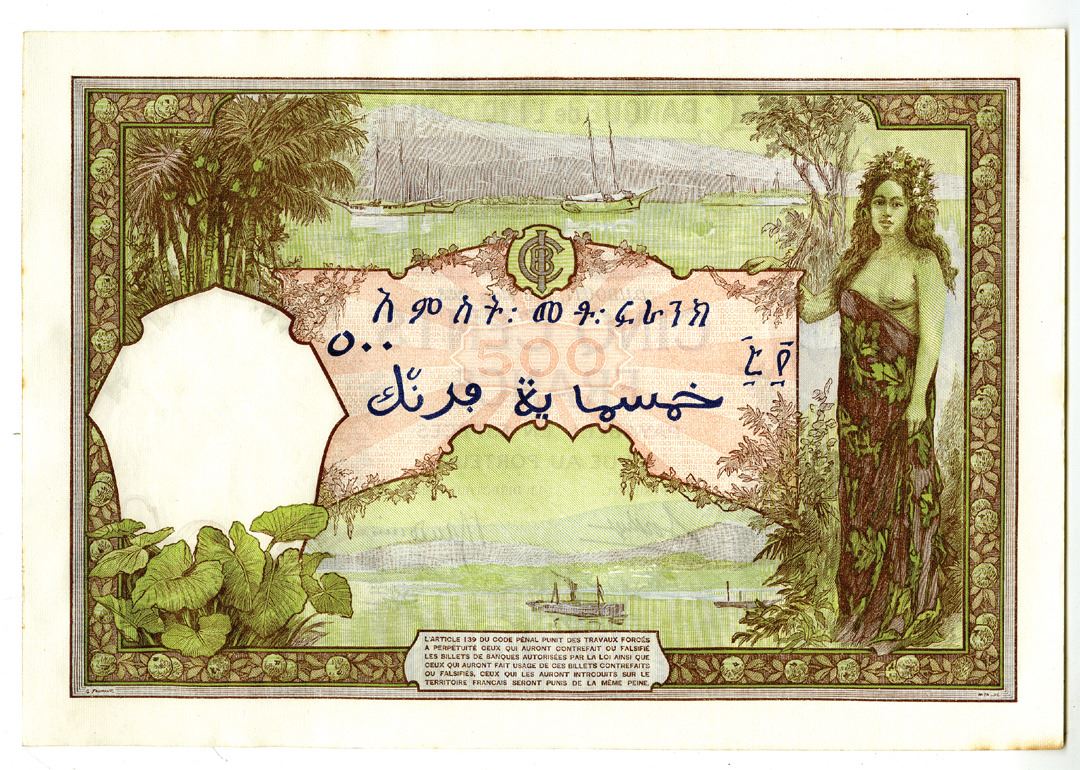 አምስት፡ መቶ፡ ፍራንክ
٥٠٠
500
፭፻
خمسماية فرنك
L'ARTICLE 139 DU CODE PÉNAL PUNIT DES TRAVAUX FORCÉS
A PERPÉTUITÉ CEUX QUI AURONT CONTREFAIT OU FALSIFIÉ
LES BILLETS DE BANQUES AUTORISÉES PAR LA LOI AINSI QUE
CEUX QUI AURONT FAIT USAGE DE CES BILLETS CONTREFAITS
OU FALSIFIÉS, CEUX QUI LES AURONT INTRODUITS SUR LE
TERRITOIRE FRANCAIS SERONT PUNIS DE LA MÊME PEINE.